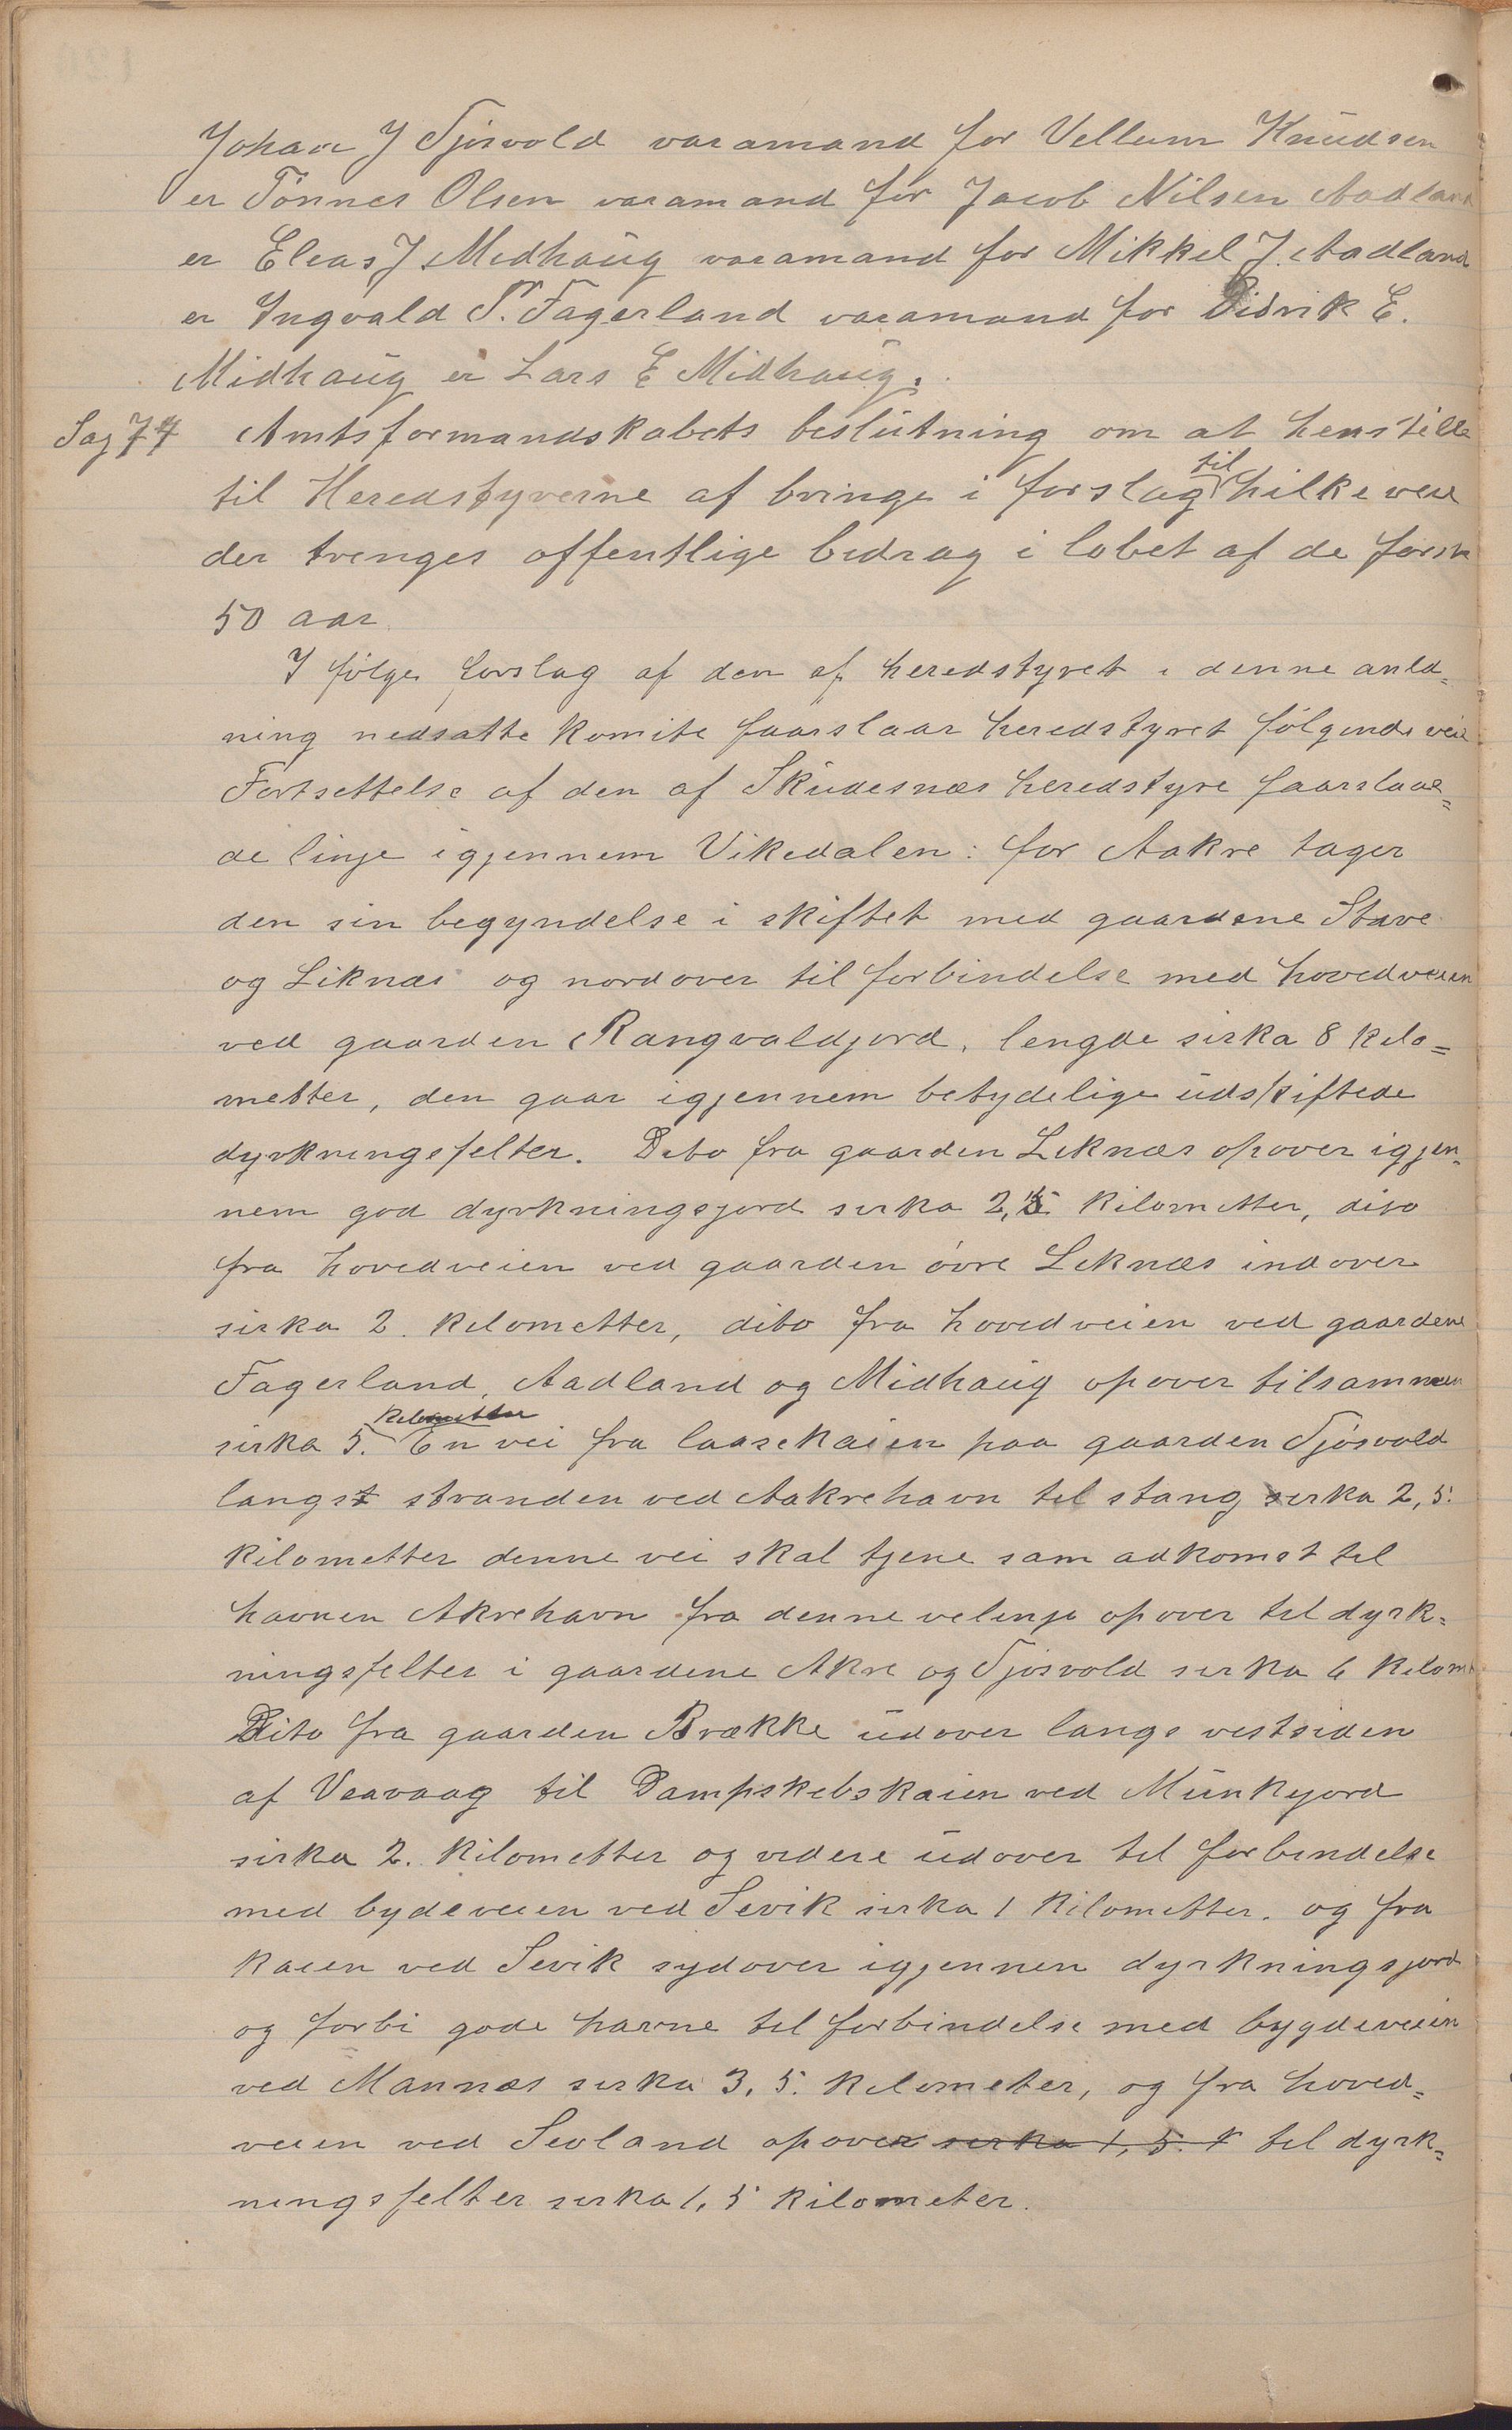 Johan J Sjøsvold varamand for Vellum Knudsen
er Tønnes Olsen varamand for Jacob Nilsen Aadland
er Eleas J Medhaug varamand for Mikkel J. Aadland
er Ingvald T. Fagerland varamand for Didrik E.
Midhaug er Lars E Midhaug.
Sag 77 Amtsformandskabets beslutning om at henstille
til Heredstyrerne af bringe i forslag til hilke veie
der trenges offentlige bedrag i løbet af de første
50 aar.
I følge forslag af den af heredstyret i denne anled=
ning nedsatte komite faarslaar heredstyret følgende veie
Fortsettelse af den af Skudesnæs heredstyre faarslaae=
de linje igjennem Vikedalen: for Aakre tager
den sin begyndelse i skiftet med gaardene Stave
og Liknæs og nordover til forbindelse med hovedveien
ved gaarden Rangvaldjord, lengde sirka 8 kilo=
metter, den gaar igjennem betydelige udskiftede
dyrkningsfelter. Dito fra gaarden Liknæs opover igjen=
nem god dyrkningsjord sirka 2,5 kilometter, dito
fra hovedveien ved gaarden øvre Liknæs indover
sirka 2. kilometter, dito fra hovedveien ved gaardene
Fagerland, Aadland og Midhaug opover tilsammen
sirka 5. kilometter En vei fra laasekaien paa gaarden Sjøsvold
langst stranden ved Aakrehavn til stang sirka 2,5.
kilometter denne vei skal tjene sam adkomst til
havnen Akrehavn fra denne velinje opover til dyrk=
ningsfelter i gaardene Akre og Sjøsvold sirka 6 kilomt
Dito fra gaarden Brække udover langs vestsiden
af Veavaag til Dampskibskaien ved Munkejord
sirka 2. kilometter og videre udover til forbindelse
med bydeveien ved Sevik sirka 1 kilometter. og fra
kaien ved Sevik sydover igjennen dyrkningsjord
og forbi gode havne til forbindelse med bygdeveien
ved Mannæs sirka 3,5. kilometer, og fra hoved=
veien ved Sevland opover sirka 1,5. k til dyrk=
ningsfelter sirka 1,5 kilometer.